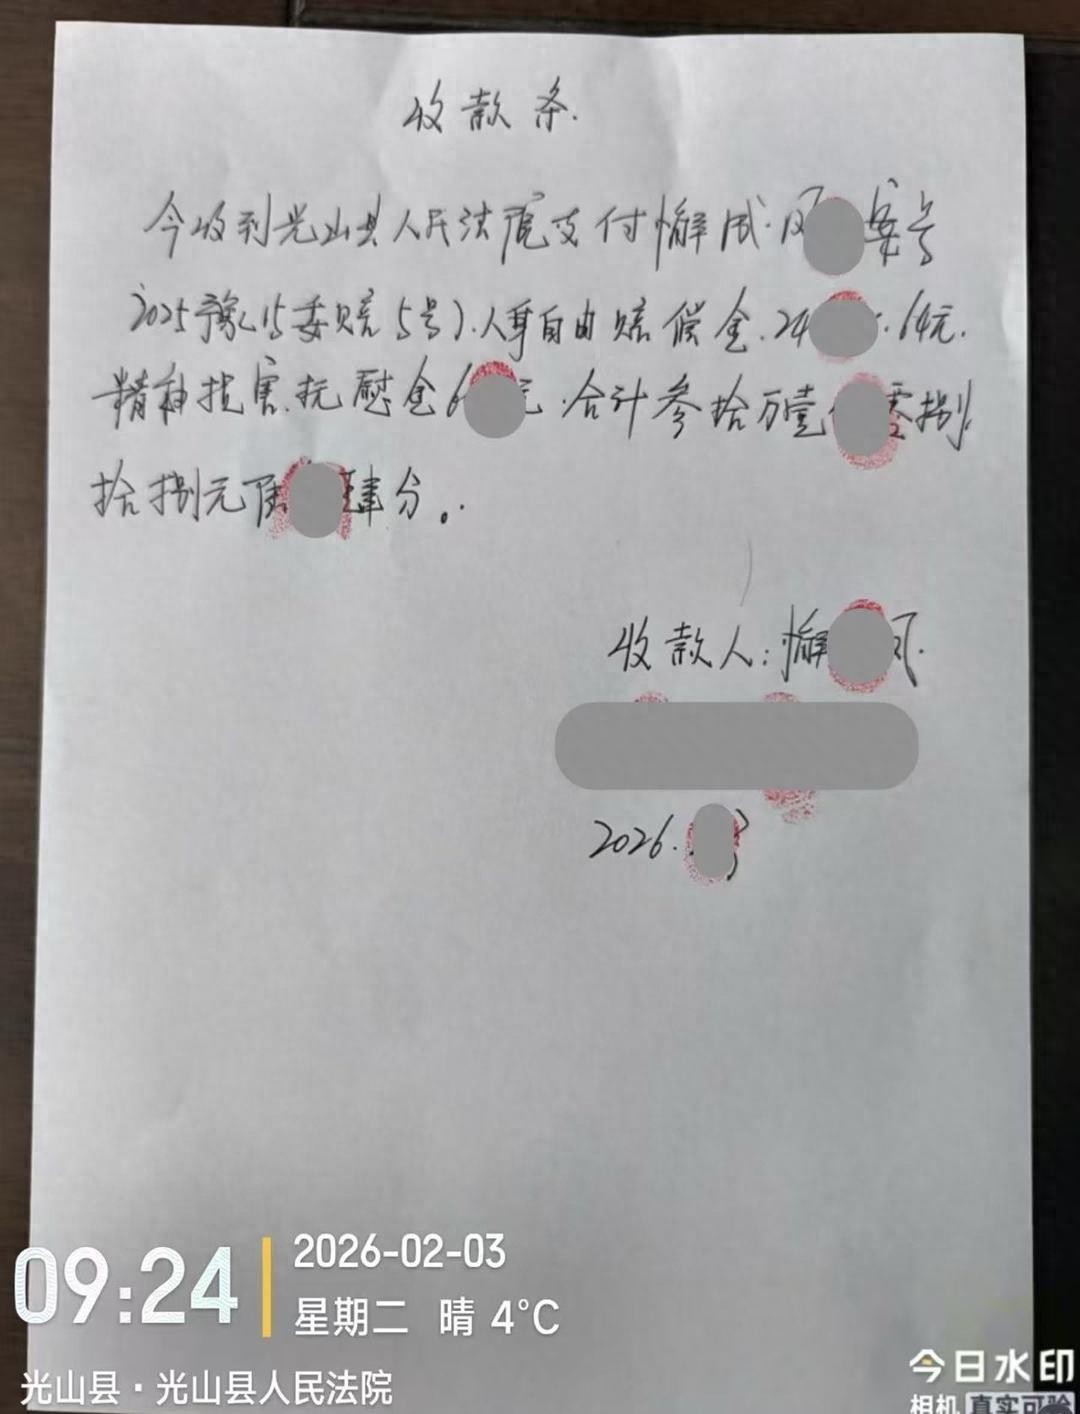 收款条.
今收到光山县人民法院支付懈成凤 案号
2025豫15委赔5号).人身自由赔偿金.24 .64元.
精神损害.抚慰金6 元.合计叁拾万壹 零捌
拾捌元陆 肆分。.
收款人:懈 凤.
2026.
09:24
2026-02-03
星期二 晴 4°C
光山县·光山县人民法院
今日水印
相机 真实可验